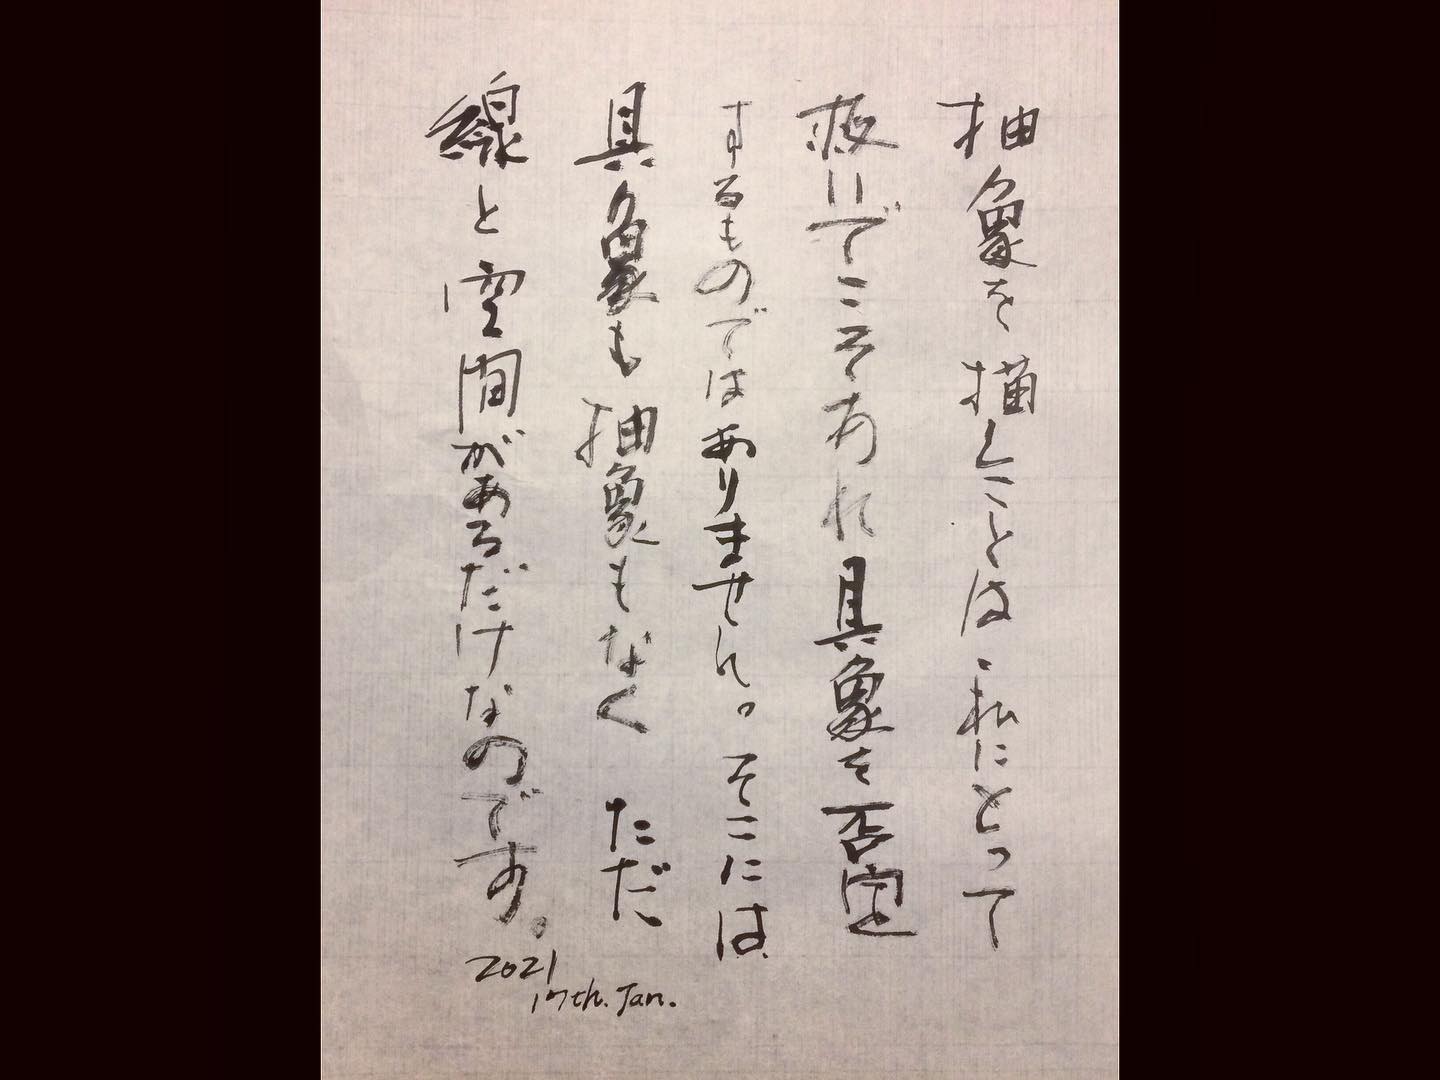 抽象を描くことは私にとって
救いでこそあれ具象を否定
するものではありません。そこには
具象も抽象もなく ただ
線と空間があるだけなのです。
2021
17th. Jan.